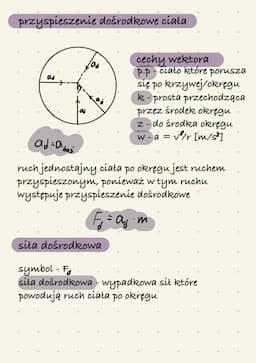 przyspieszenie dośrodkowe ciała
ad
ad
ad
ad
cechy wektora
p.p - ciało które porusza
się po krzywej/okręgu
k - prosta przechodząca
przez środek okręgu
z - do środka okręgu
w - a = v²/r [m/s²]
ruch jednostajny ciała po okręgu jest ruchem
przyspieszonym, ponieważ w tym ruchu
występuje przyspieszenie dośrodkowe
Fd = ad · m
siła dośrodkowa
symbol - Fd
siła dośrodkowa - wypadkowa sił które
powodują ruch ciała po okręgu